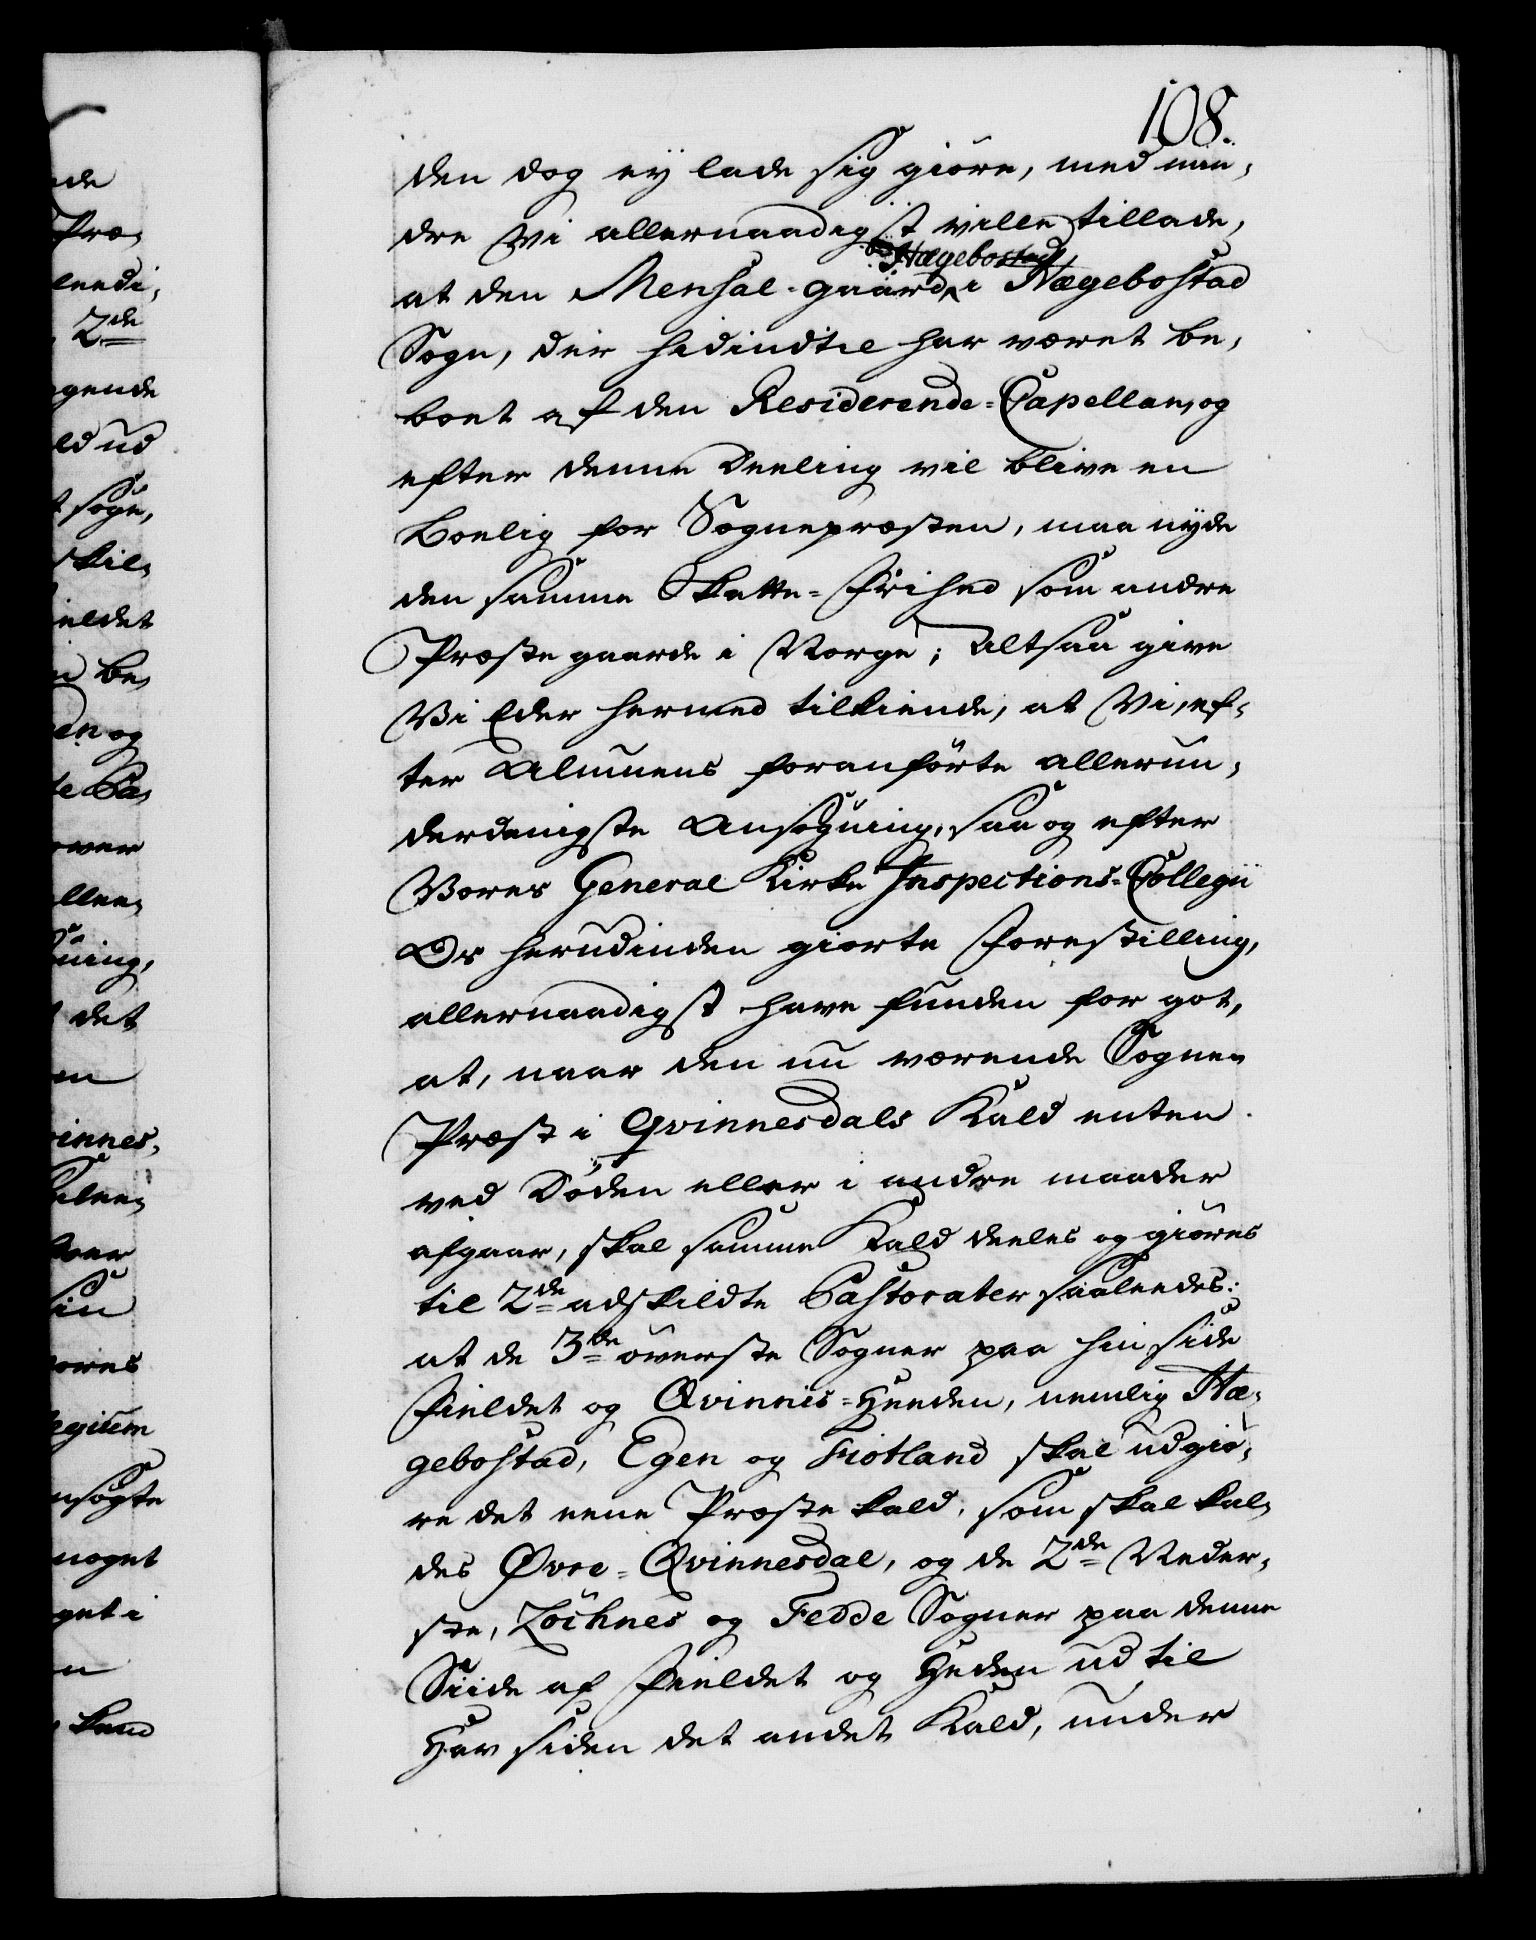 108.
den dog ey lade sig giöre, med min,
dre Vi allernaadigst ville tillade,
Hægebostad
at den Mensal-gaard i Hægebostad
Sogn, der hidindtil har været be,
boet af den Residerende=Capellan, og
efter denne Deeling vil blive en
Boelig for Sognepræsten, maa nyde
den samme Skatte=Frihed som andre
Præste gaarde i Norge; Altsaa give
Vi Eder hermed tilkiende, at Vi, ef,
ter Almuens foranförte allerun,
derdanigste Ansögning, saa og efter
Vores General Kirke Inspections=Collegii
Os herudinden giorte Forestilling,
allernaadigst have funden for got,
at, naar den nu værende Sogne,
Præst i Qvinnesdals Kald enten
ved Döden eller i andre maader
afgaar, skal samme Kald deeles og giöres
til 2de adskildte Pastorater saaleedes:
at de 3de överste Sogner paa hin side
Fieldet og Qvinnis=Heeden, nemlig Hæ,
gebostad, Egen og Fiotland skal udgiö,
re det eene Præste kald, som skal kal,
des Øvre=Qvinnesdal, og de 2de Neder,
ste, Löchnes og Fedde Sogner paa denne
Siide af Fieldet og Heden ud til
Hav siden det andet Kald, under
ade
Præ,
leedi,
2de
gende
ld ud
sogn,
skil,
ieldet
be,
en og
de Ca,
over
ning,
det
innes,
ores
egium
nsögte
noget
get i